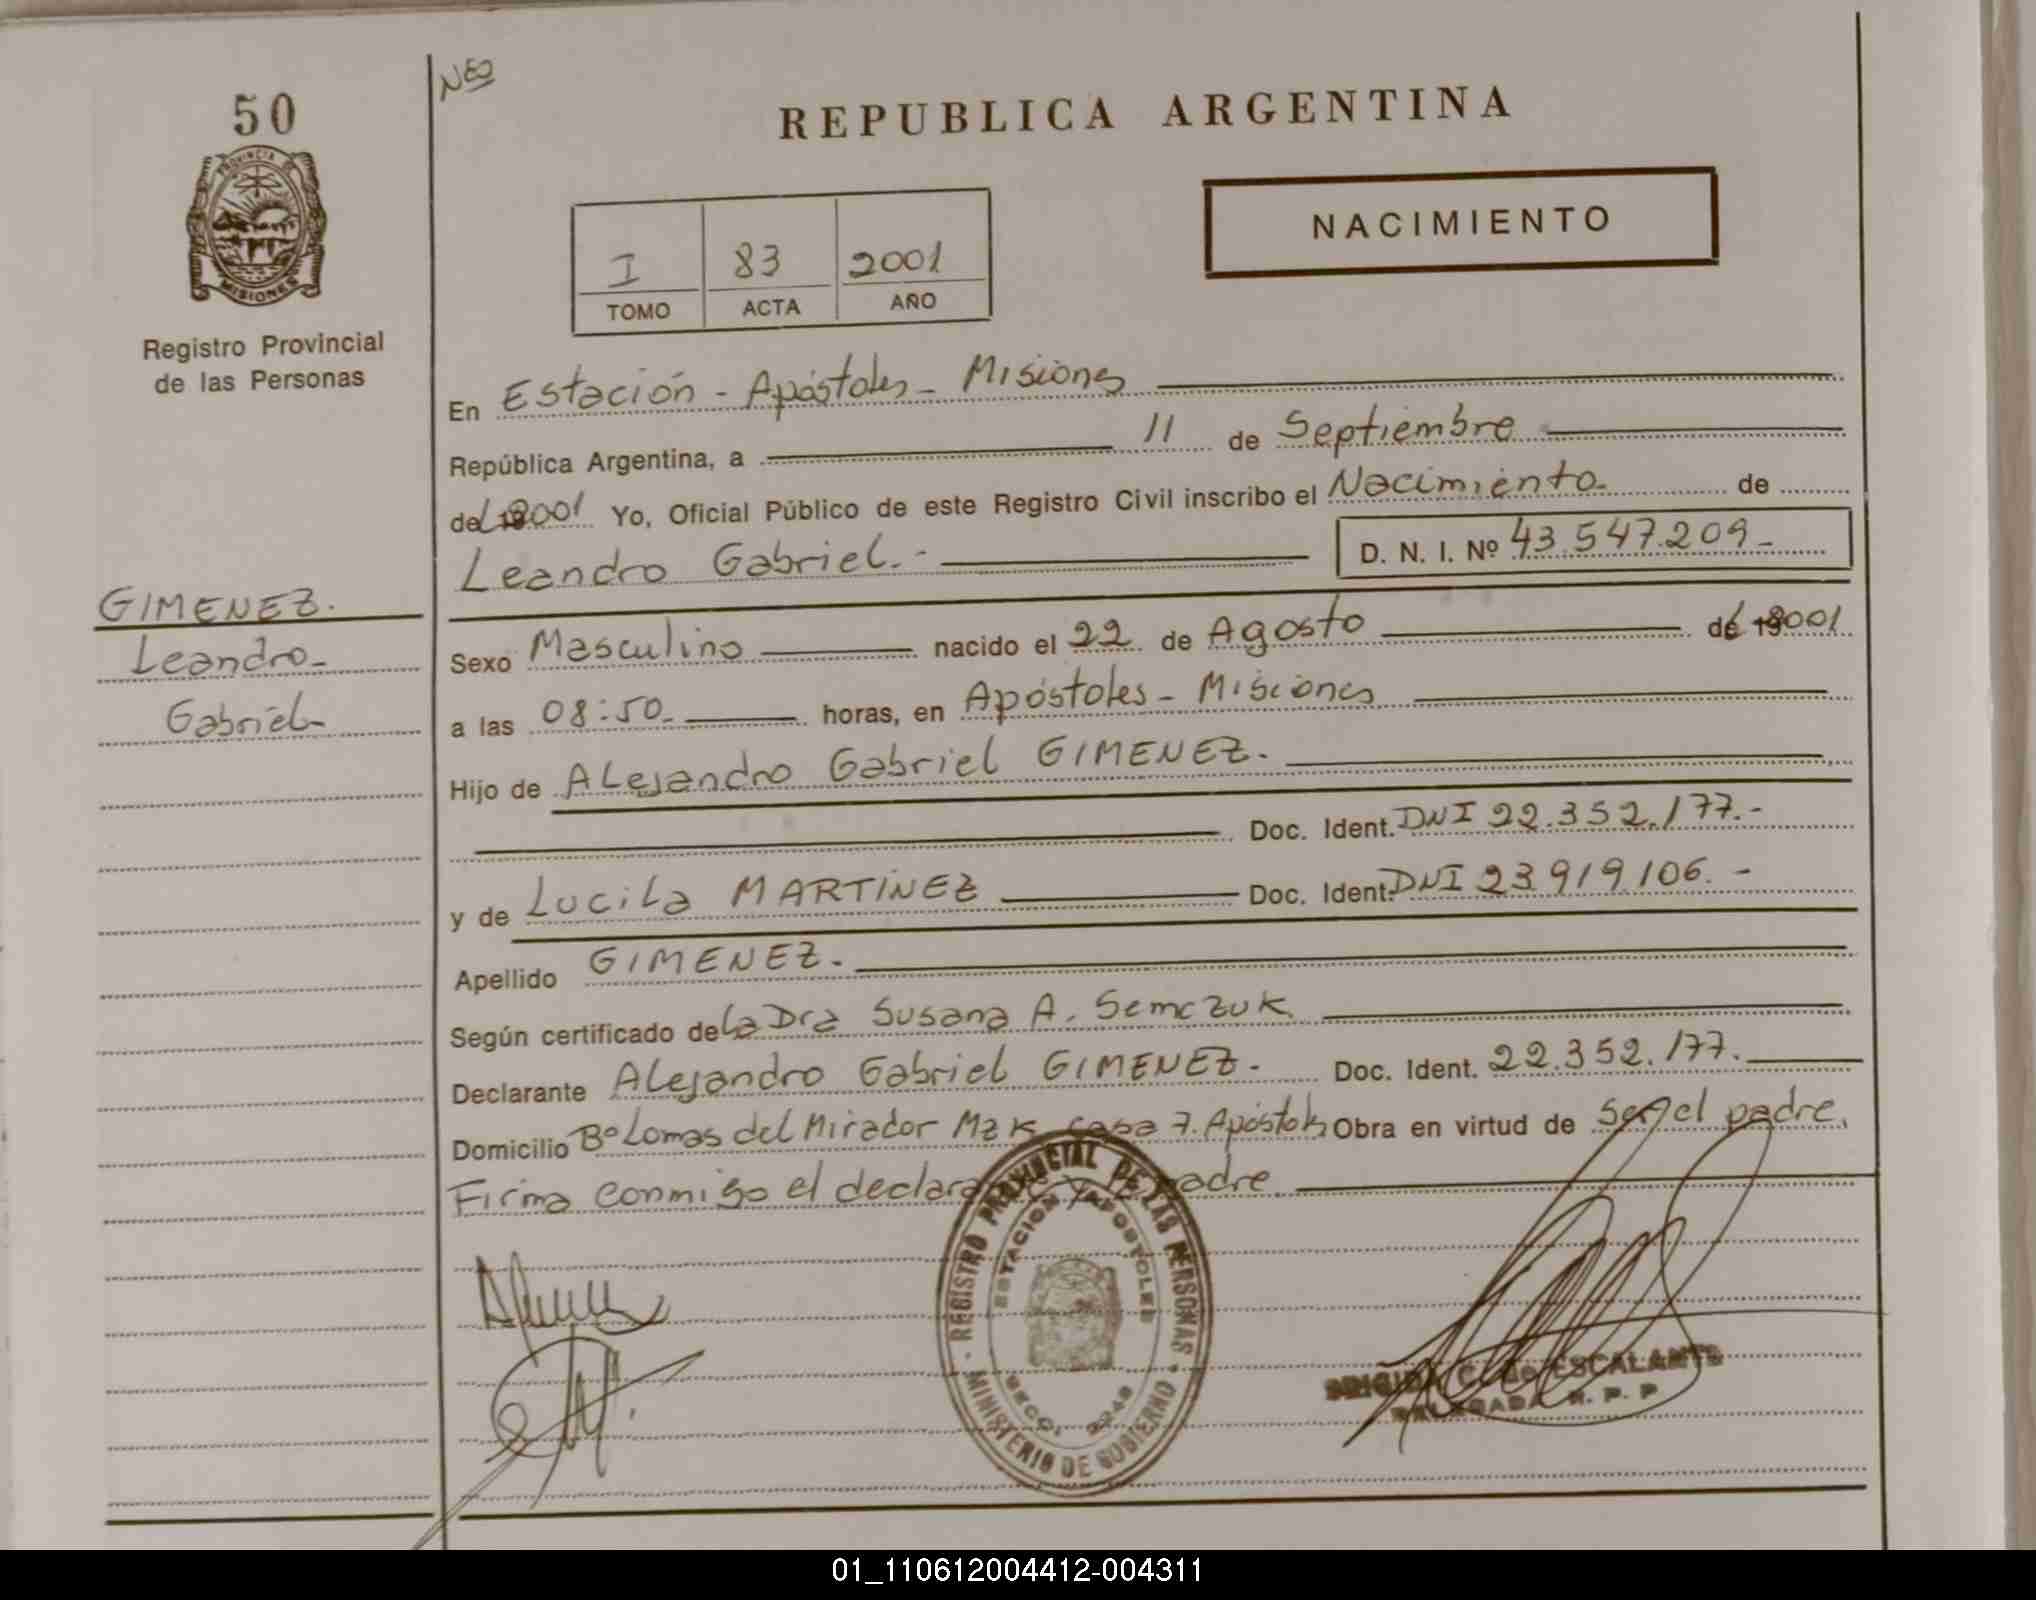 50
PROVINCIA DE
MISIONES
Registro Provincial
de las Personas
GIMENEZ.
Leandro
Gabriel
NEO
REPUBLICA ARGENTINA
NACIMIENTO
I 83 2001
TOMO ACTA AÑO
En Estación - Apóstoles - Misiones
República Argentina, a 11 de Septiembre
del 2001 Yo, Oficial Público de este Registro Civil inscribo el Nacimiento de
Leandro Gabriel.- D. N. I. Nº 43.547.209-
Sexo Masculino nacido el 22 de Agosto del 2001
a las 08:50 horas, en Apóstoles - Misiones
Hijo de Alejandro Gabriel GIMENEZ.
Doc. Ident. DNI 22.352.177.-
y de Lucila MARTINEZ Doc. Ident. DNI 23.919.106.-
Apellido GIMENEZ.
Según certificado de la Dra Susana A. Semczuk
Declarante Alejandro Gabriel GIMENEZ. Doc. Ident. 22.352.177.
Domicilio Bº Lomas del Mirador Mz K casa 7. Apóstoles Obra en virtud de ser el padre.
Firma conmigo el declarante y la madre
REGISTRO PROVINCIAL DE LAS PERSONAS
MINISTERIO DE GOBIERNO
ESTACION APOSTOLES
BRIGIDA C. de ESCALANTE
DELEGADA R. P. P
01_110612004412-004311